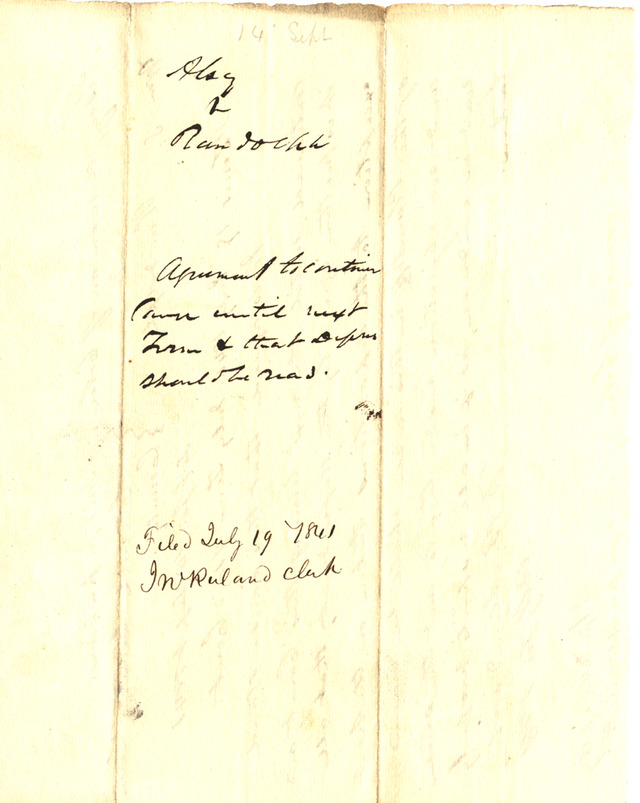 14 Sept
Alsy
v
Randolph
Agreement to continue
Cause until next
Term & that Depos
should be read.
Filed July 19 1841
J W Ruland Clerk